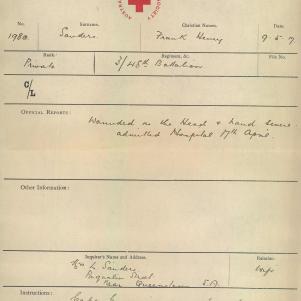 SOCIETY AUSTR
No. Surname. Christian Names. Date.
1980. Sanders Frank Henry 9-5-17
Rank: Regiment, &c. File No.
Private 3/48th Battalion
C/L
OFFICIAL REPORTS:
Wounded in the Head & hand severe.
admitted Hospital 17th April.
Other Information:
Inquirer's Name and Address. Relation:
Mrs L. Sanders Wife
Street
Near Queenstown S.A.
Instructions: